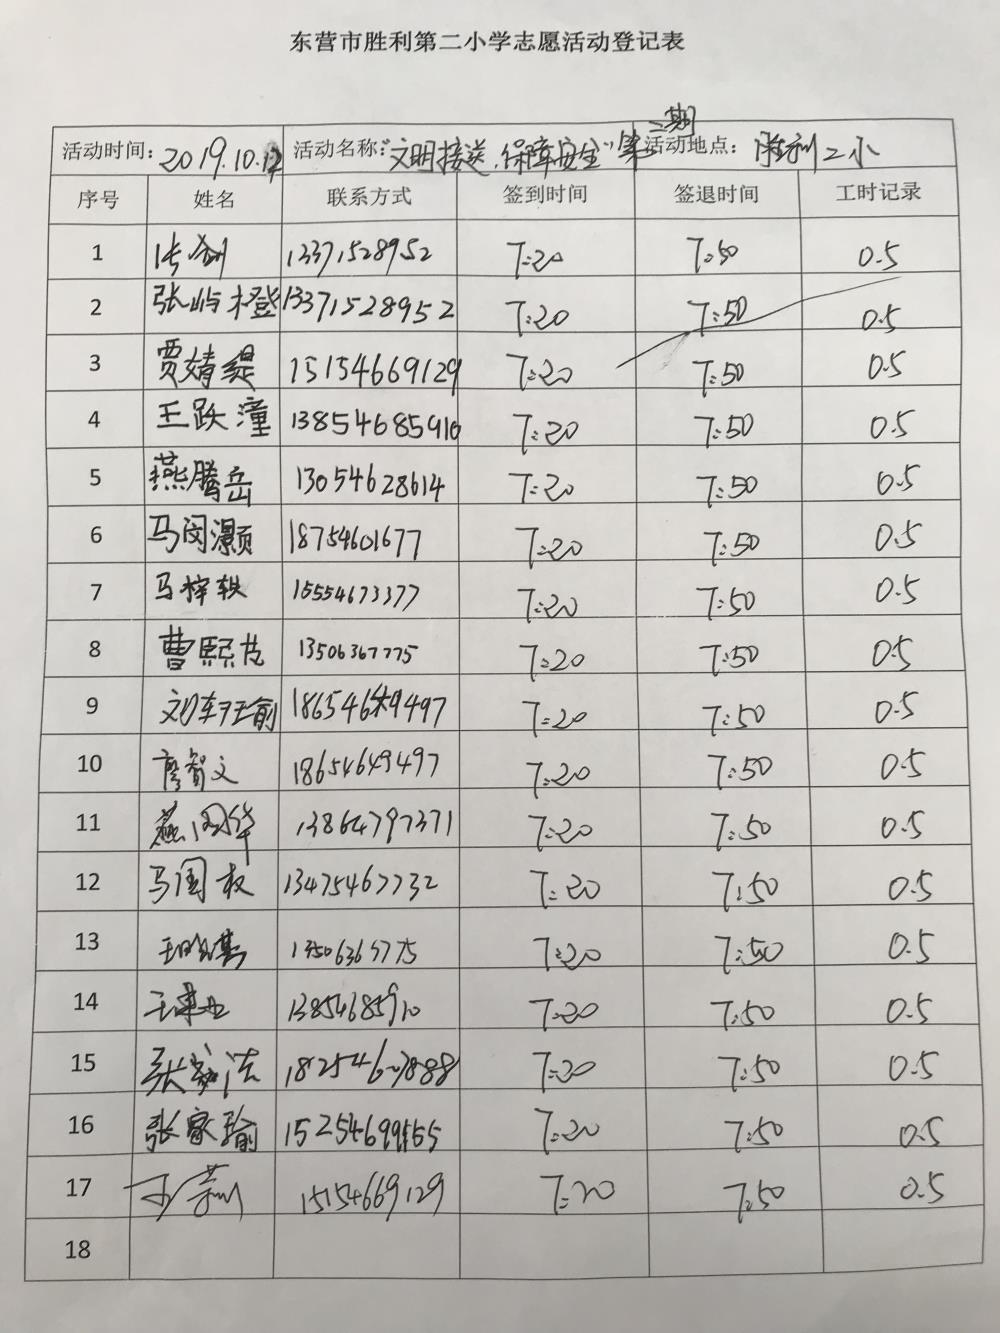 东营市胜利第二小学志愿活动登记表
活动时间: 2019.10.12 活动名称:"文明接送,保障安全"第二期 活动地点: 胜利二小
序号 姓名 联系方式 签到时间 签退时间 工时记录
1 张剑 13371528952 7:20 7:50 0.5
2 张屿橙 13371528952 7:20 7:50 0.5
3 贾婧缇 15154669129 7:20 7:50 0.5
4 王跃潼 13854685910 7:20 7:50 0.5
5 燕腾岳 13054628614 7:20 7:50 0.5
6 马闵灏 18754601677 7:20 7:50 0.5
7 马梓轶 15554673377 7:20 7:50 0.5
8 曹熙 13506367775 7:20 7:50 0.5
9 刘 7:20 7:50 0.5
10 廖智文 18654649497 7:20 7:50 0.5
11 燕国华 13864797371 7:20 7:50 0.5
12 马国权 13475467732 7:20 7:50 0.5
13 7:20 7:50 0.5
14 王 13854685910 7:20 7:50 0.5
15 张 7:20 7:50 0.5
16 张家瑜 7:20 7:50 0.5
17 15154669129 7:20 7:50 0.5
18